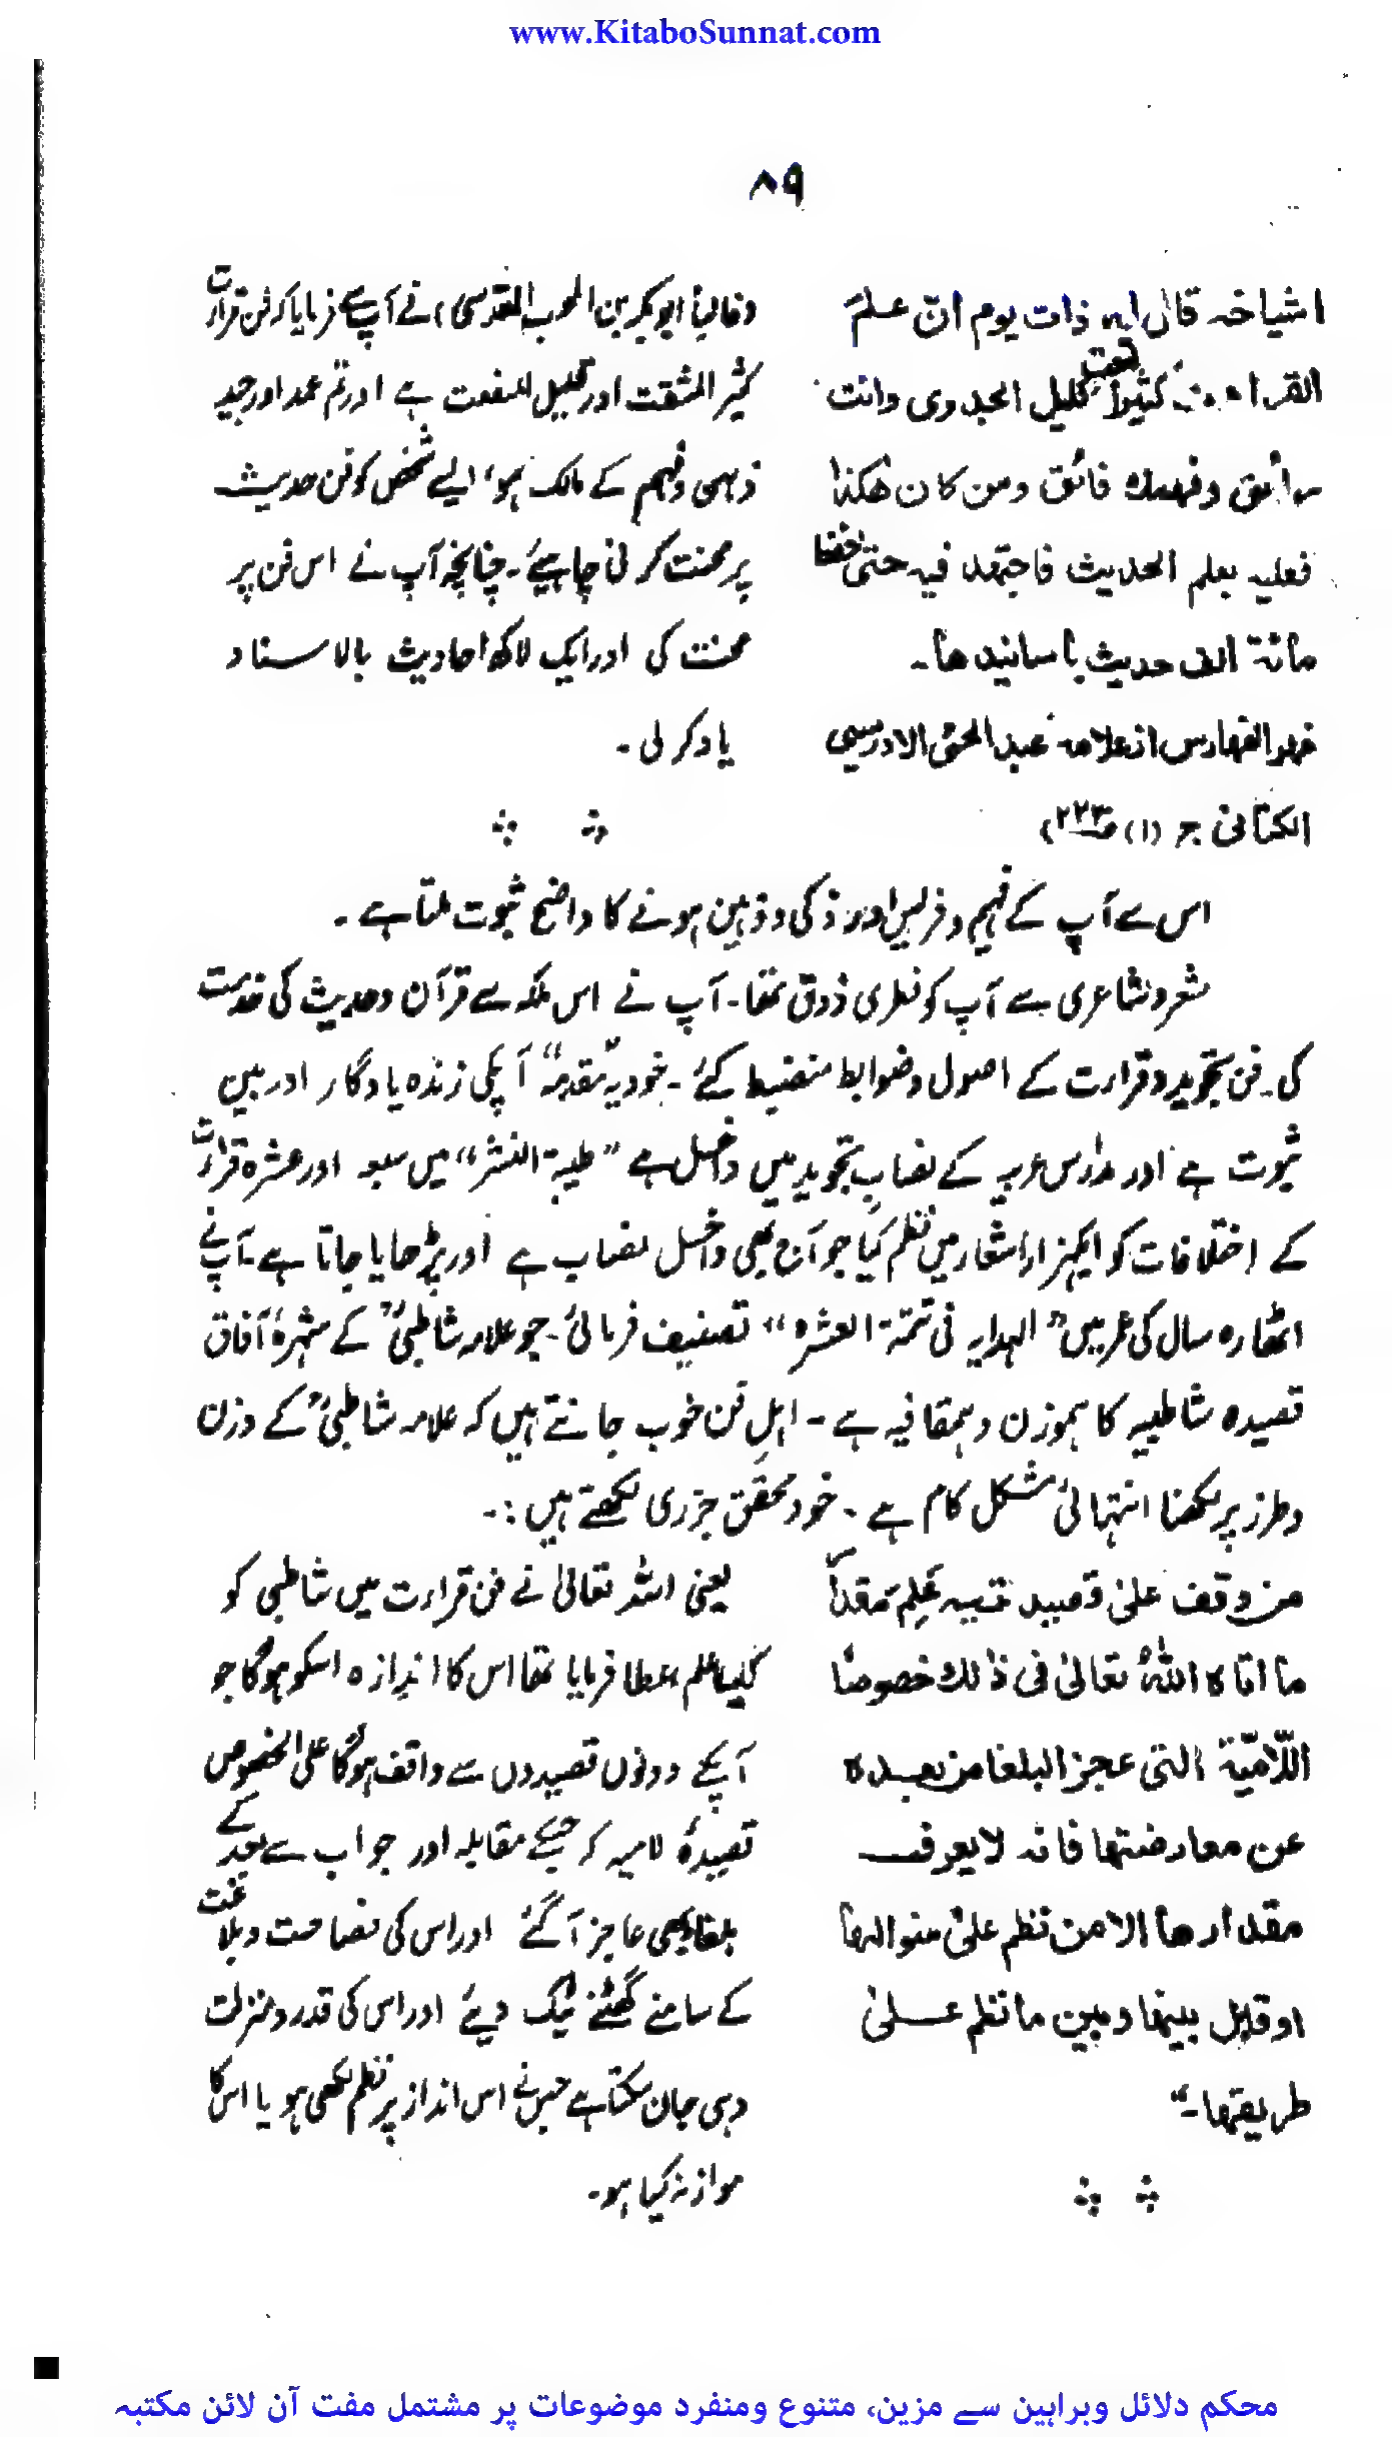 www.KitaboSunnat.com
۸۹
اشیاخہ قال لہ ذات یوم ان علم
القراءت کثیرا تعب قلیل الجدوی وانت
رائق وفهمك فائق ومن کان ھکذا
فعلیہ بعلم الحدیث فاجتهد فیہ حتیٰ حفظ
مائۃ الف حدیث باسانیدھا۔
فہر الفہارس از علامہ عبدالحئی الادریسی
الکتانی ج (۱) ص ۲۲۳)
(غالباً ابوبکر بن المحب المقدسی) نے آپ سے فرمایا کہ فن قرأت
کثیر المشقت اور قلیل المنفعت ہے اور تم عمدہ اور جید
ذہن وفہم کے مالک ہو، ایسے شخص کو فن حدیث
پر محنت کرنی چاہیئے۔ چنانچہ آپ نے اس فن پر
محنت کی اور ایک لاکھ احادیث بالاسناد
یاد کر لی۔
اس سے آپ کے فہیم و فریس اور ذکی و ذہین ہونے کا واضح ثبوت ملتا ہے۔
شعر و شاعری سے آپ کو فطری ذوق تھا۔ آپ نے اس ملکہ سے قرآن وحدیث کی خدمت
کی۔ فن تجوید و قرارت کے اصول و ضوابط منضبط کئے۔ خود یہ "مقدمہ" آپکی زندہ یادگار اور مبین
ثبوت ہے اور مدارس عربیہ کے نصابِ تجوید میں داخل ہے "طیبۃ النشر" میں سبعہ اور عشرہ قراءت
کے اختلافات کو ایکہزار اشعار میں نظم کیا جو آج بھی داخل نصاب ہے اور پڑھایا جاتا ہے۔ آپ نے
اٹھارہ سال کی عمر میں "الہدایہ فی تتمۃ العشرہ" تصنیف فرمائی۔ جو علامہ شاطبیؒ کے شہرۂ آفاق
قصیدہ شاطبیہ کا ہموزن و ہمقافیہ ہے۔ اہلِ فن خوب جانتے ہیں کہ علامہ شاطبیؒ کے وزن
وطرز پر لکھنا انتہائی مشکل کام ہے۔ خود محقق جزری لکھتے ہیں :۔
من وقف علیٰ قصیدتیہ عَلِمَ مقدار
ما اتاہ اللہُ تعالیٰ فی ذٰلك خصوصًا
اللّامیّۃ التی عجز البلغا من بعدہ
عن معارضتھا فانہ لا یعرف
مقدارھا الا من نظم علیٰ منوالھا
اوقابل بینھا وبین ما نظم عــلیٰ
طریقتھا۔"
یعنی اللہ تعالیٰ نے فن قراءت میں شاطبی کو
کیسا علم عطا فرمایا تھا اس کا اندازہ اسکو ہوگا جو
آپکے دونوں قصیدوں سے واقف ہوگا علی الخصوص
قصیدۂ لامیہ کہ جسکے مقابلہ اور جواب سے بعد کے
بلغا بھی عاجز آگئے اور اس کی فصاحت و بلاغت
کے سامنے گھٹنے ٹیک دیئے اور اس کی قدر و منزلت
وہی جان سکتا ہے جس نے اس انداز پر نظم لکھی ہو یا اس کا
موازنہ کیا ہو۔
محکم دلائل وبراہین سے مزین، متنوع ومنفرد موضوعات پر مشتمل مفت آن لائن مکتبہ